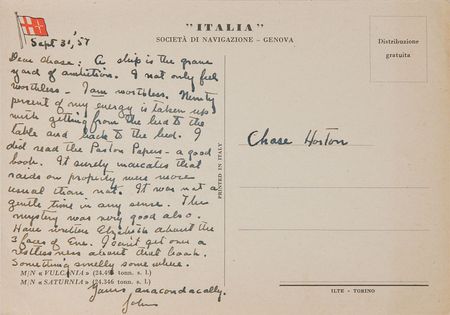 "ITALIA"
SOCIETÀ DI NAVIGAZIONE - GENOVA
Distribuzione
gratuita
Sept 31, '57
Dear Chase: A ship is the grave
yard of ambitions. I not only feel
worthless - I am worthless. Ninety
percent of my energy is taken up
with getting from the bed to the
table and back to the bed. I
did read the Paston Papers - a good
book. It surely indicates that
raids on property were more
usual than not. It was not a
gentle time in any sense. The
mystery was very good also.
Have written Elizabeth about the
3 faces of Eve. I can't get over a
restlessness about that book.
Something smelly some where.
M/N «VULCANIA» (24.496 tonn. s. l.)
M/N «SATURNIA» (24.346 tonn. s. l.)
Yours anacondacally.
John
PRINTED IN ITALY
Chase Horton
ILTE - TORINO